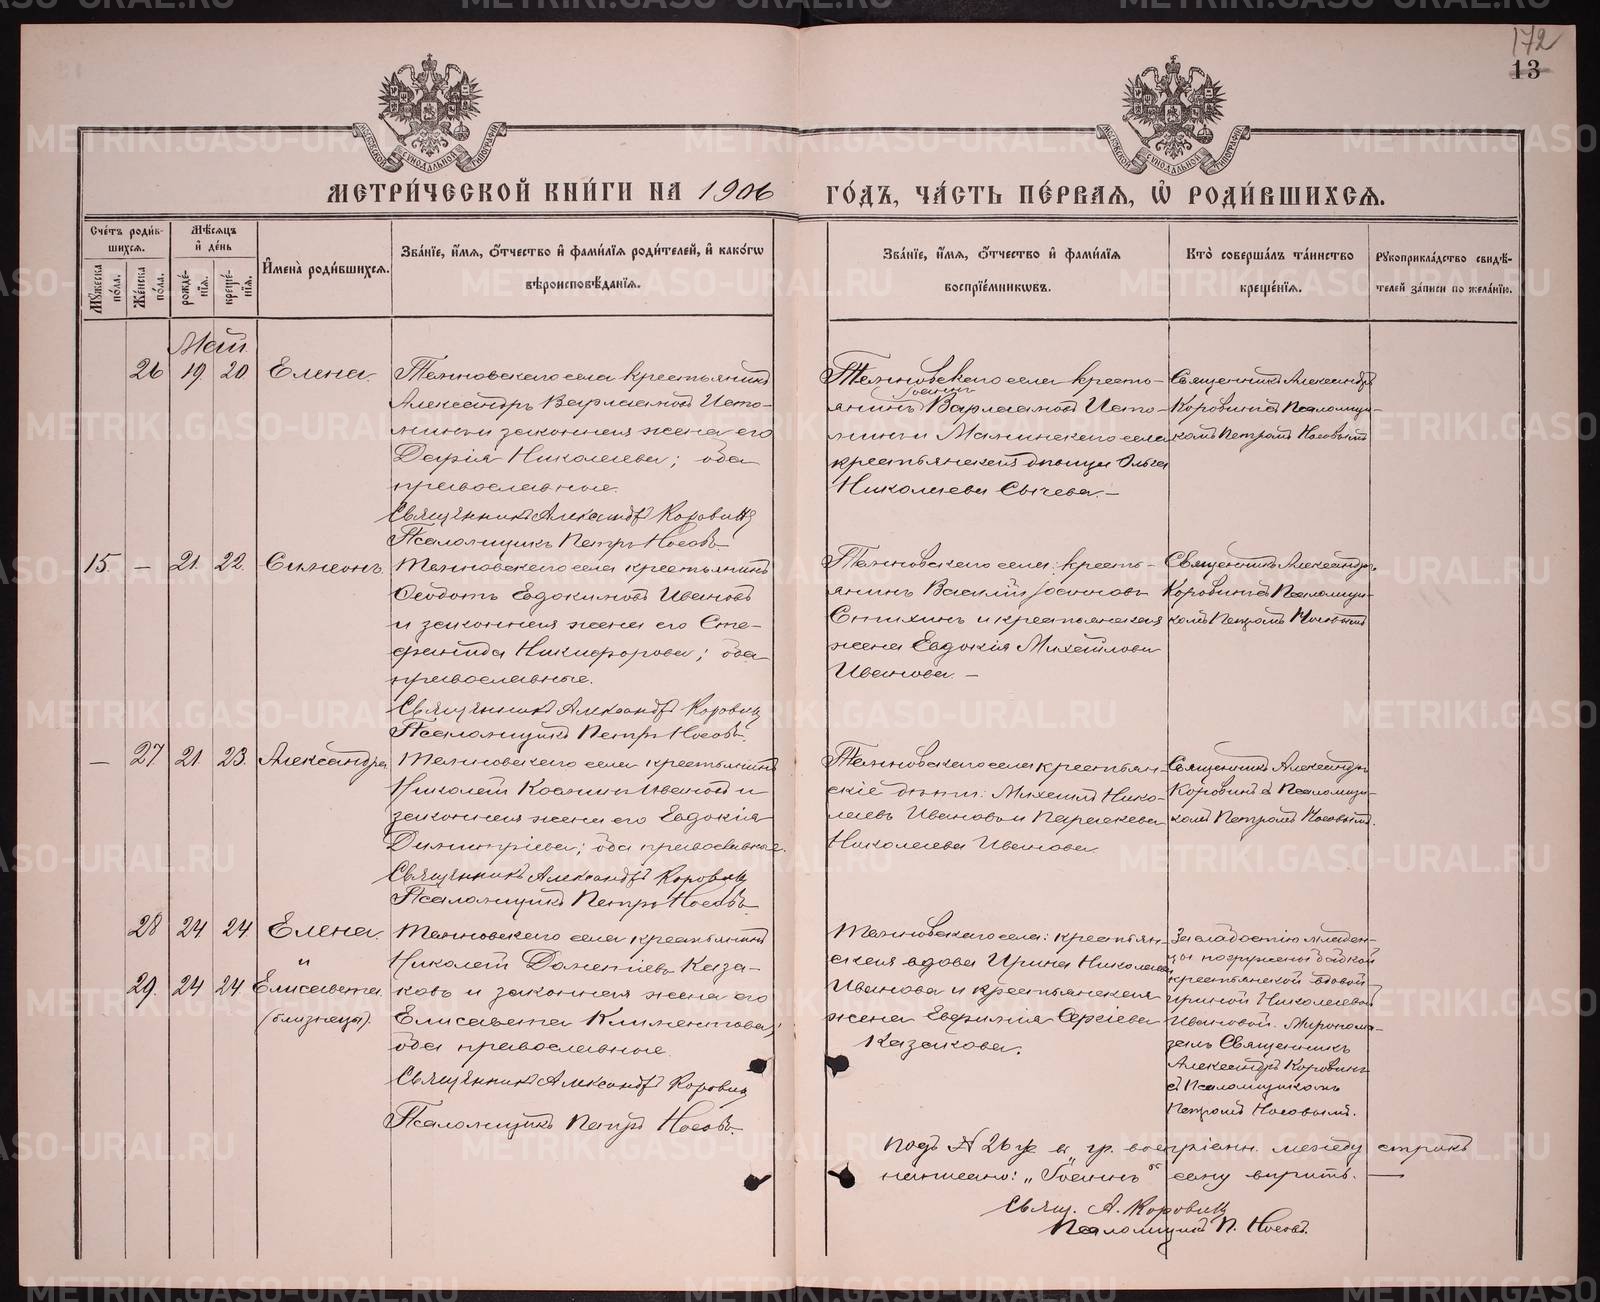 172
13
МЕТРИ́ЧЕСКОЙ КНИ́ГИ НА 1906 ГО́ДЪ, ЧА́СТЬ ПЕ́РВАЯ, Ѡ҆ РОДИ́ВШИХСЯ.
Сче́тъ роди́вшихся.
Мужеска по́ла.
Же́нска по́ла.
Мѣ́сяцъ и де́нь
рожде́нія.
креще́нія.
Имена̀ роди́вшихся.
Зва́ніе, и́мя, ѻ́тчество и фами́лія роди́телей, и како́гѡ
вѣроисповѣ́данія.
Зва́ніе, и́мя, ѻ́тчество и фами́лія
воспріе́мникѡвъ.
Кто̀ соверша́лъ та́инство
креще́нія.
Рукоприкла́дство свидѣ́-
телей за́писи по жела́нію.
Май
26 19 20 Елена.
села крестьянинъ
Александръ Варлаамовъ Исто-
минъ и законная жена его
Дарія Николаева; оба
православные.
Священникъ Александръ Коровинъ
Псаломщикъ Петръ Носовъ
села кресть-
Іоаннъ
янинъ Варлаамовъ Исто-
минъ и Маминскаго села
крестьянская дѣвица Ольга
Николаева Сычева. —
Священникъ Александръ
Коровинъ съ Псаломщи-
комъ Петромъ Носовымъ
15 — 21 22 Симеонъ
села крестьянинъ
Ѳеодотъ Евдокимовъ Ивановъ
и законная жена его Сте-
фанида Никифорова; оба
православные.
Священникъ Александръ Коровинъ
Псаломщикъ Петръ Носовъ.
села: кресть-
янинъ Василій Іоанновъ
и крестьянская
жена Евдокія Михайлова
Иванова. —
Священникъ Александръ
Коровинъ съ Псаломщи-
комъ Петромъ Носовымъ
— 27 21 23 Александра
села крестьянинъ
Николай Косминъ Ивановъ и
законная жена его Евдокія
Димитріева; оба православные.
Священникъ Александръ Коровинъ
Псаломщикъ Петръ Носовъ.
села крестьян-
скіе дѣти: Михаилъ Нико-
лаевъ Ивановъ и Параскева
Николаева Иванова.
Священникъ Александръ
Коровинъ съ Псаломщи-
комъ Петромъ Носовымъ.
28 24 24 Елена
и
29 24 24 Елисавета.
(близнецы).
села крестьянинъ
Николай Каза-
ковъ и законная жена его
Елисавета Климентова;
оба православные.
Священникъ Александръ Коровинъ
Псаломщикъ Петръ Носовъ.
села: крестьян-
ская вдова Ирина Николаева
Иванова и крестьянская
жена Евфимія Сергіева
Казакова.
За слабостію младен-
цы погружены бабкой
крестьянской вдовой
Ириной Николаевой
Ивановой. Миропома-
залъ Священникъ
Александръ Коровинъ
съ Псаломщикомъ
Петромъ Носовымъ.
Подъ N 26 ж въ гр. воспріемн. между строкъ
написано: „Іоаннъ“ сему вѣрить. —
Свящ. А. Коровинъ
Псаломщикъ П. Носовъ.
METRIKI.GASO-URAL.RU